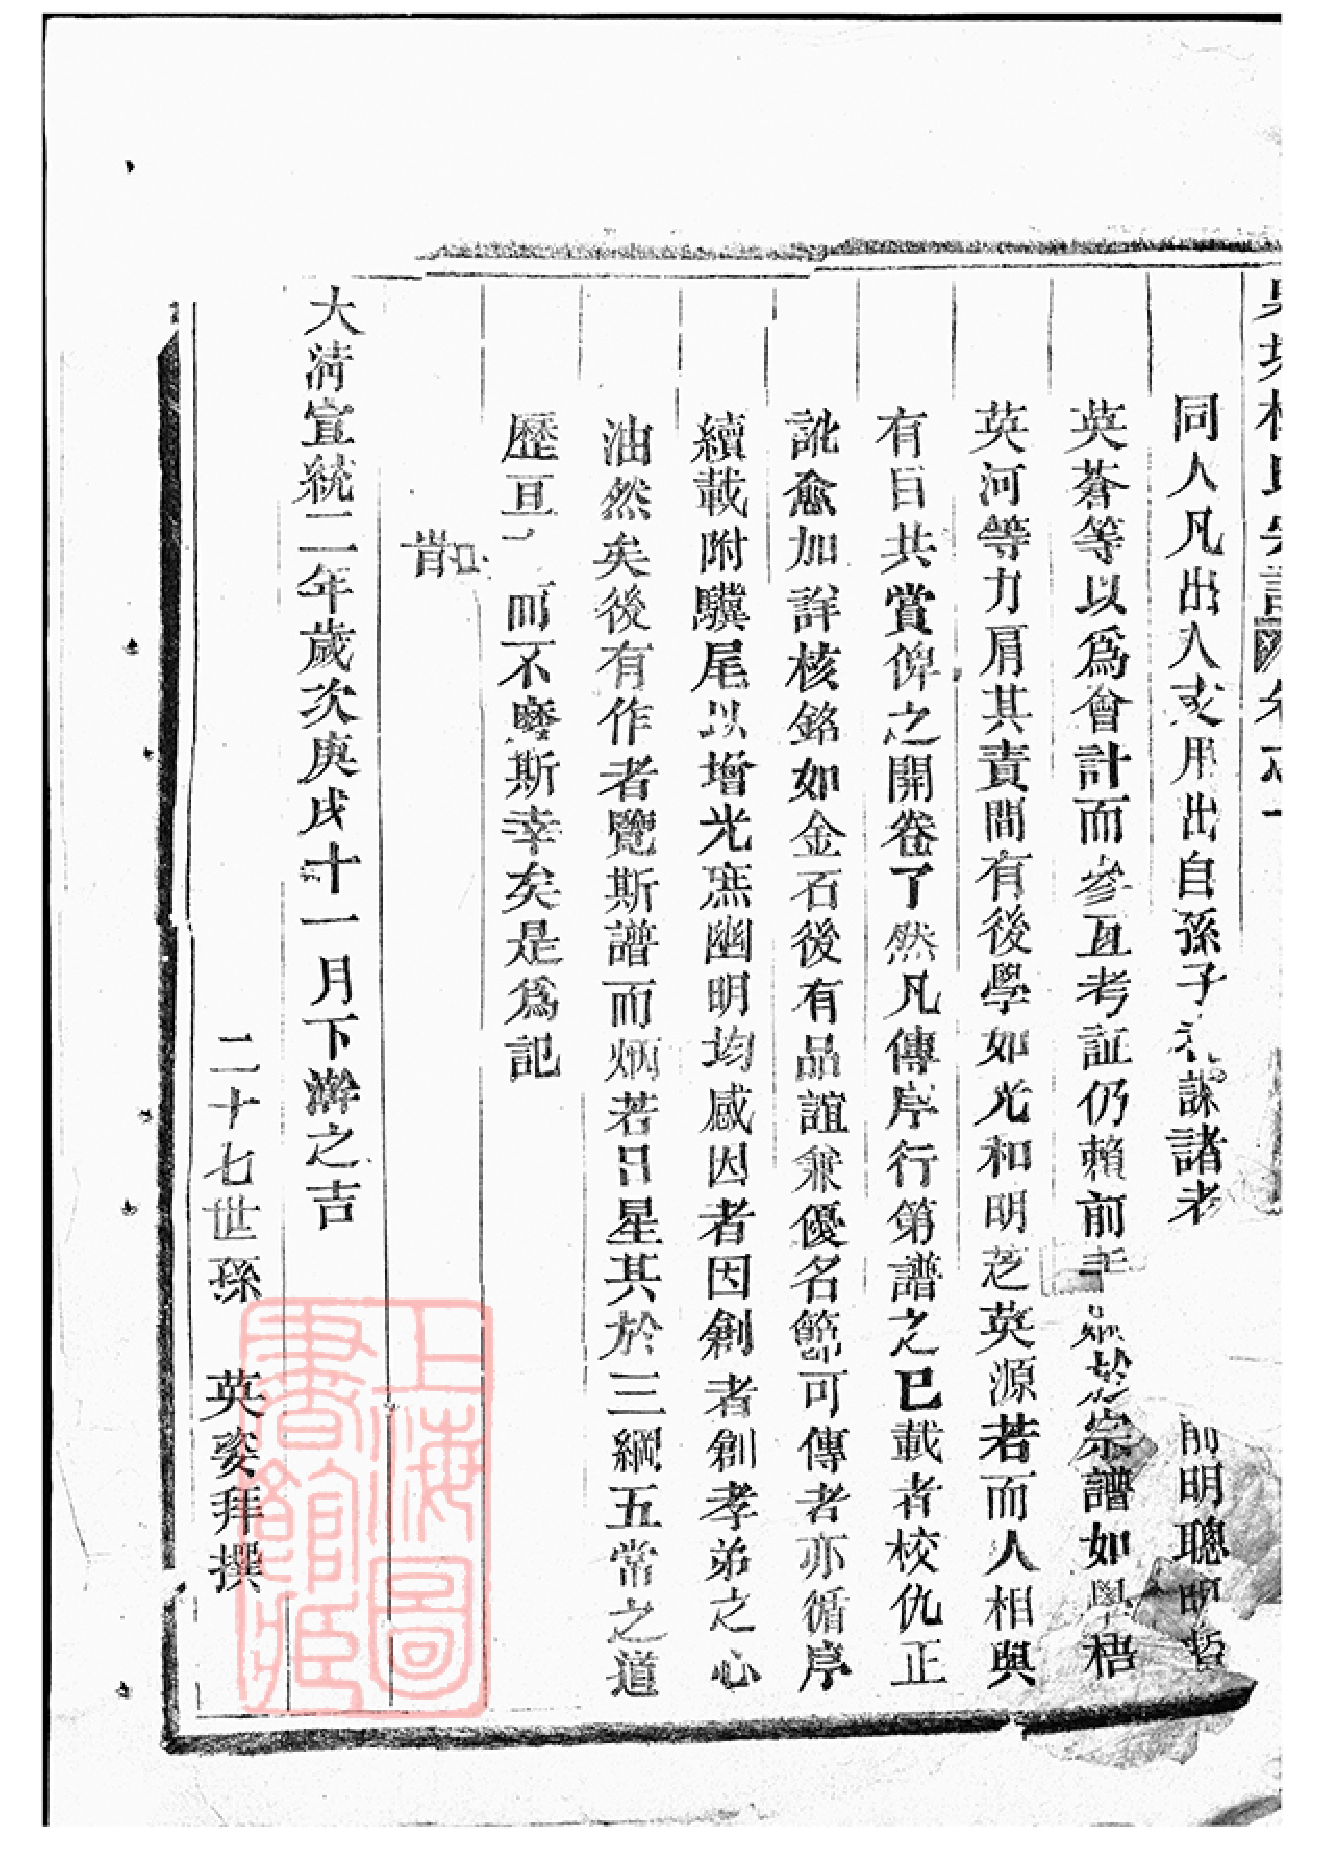 同人凡出入支用出自孫子
諸老
明聰明哲
英蒼等以爲會計而參互考証仍賴前
宗譜如學梧
英河等力肩其責間有後學如光和明芝英源若而人相與
有目共賞俾之開卷了然凡傳序行第譜之已載者校仇正
訛愈加詳核銘如金石後有品誼兼優名節可傳者亦循序
續載附驥尾以增光庶幽明均感因者因創者創孝弟之心
油然矣後有作者覽斯譜而炳若日星其於三綱五常之道
歷亘
而不磨斯幸矣是爲記
旹
大清宣統二年歲次庚戌十一月下澣之吉
二十七世孫 英姿拜撰
上海圖書館藏